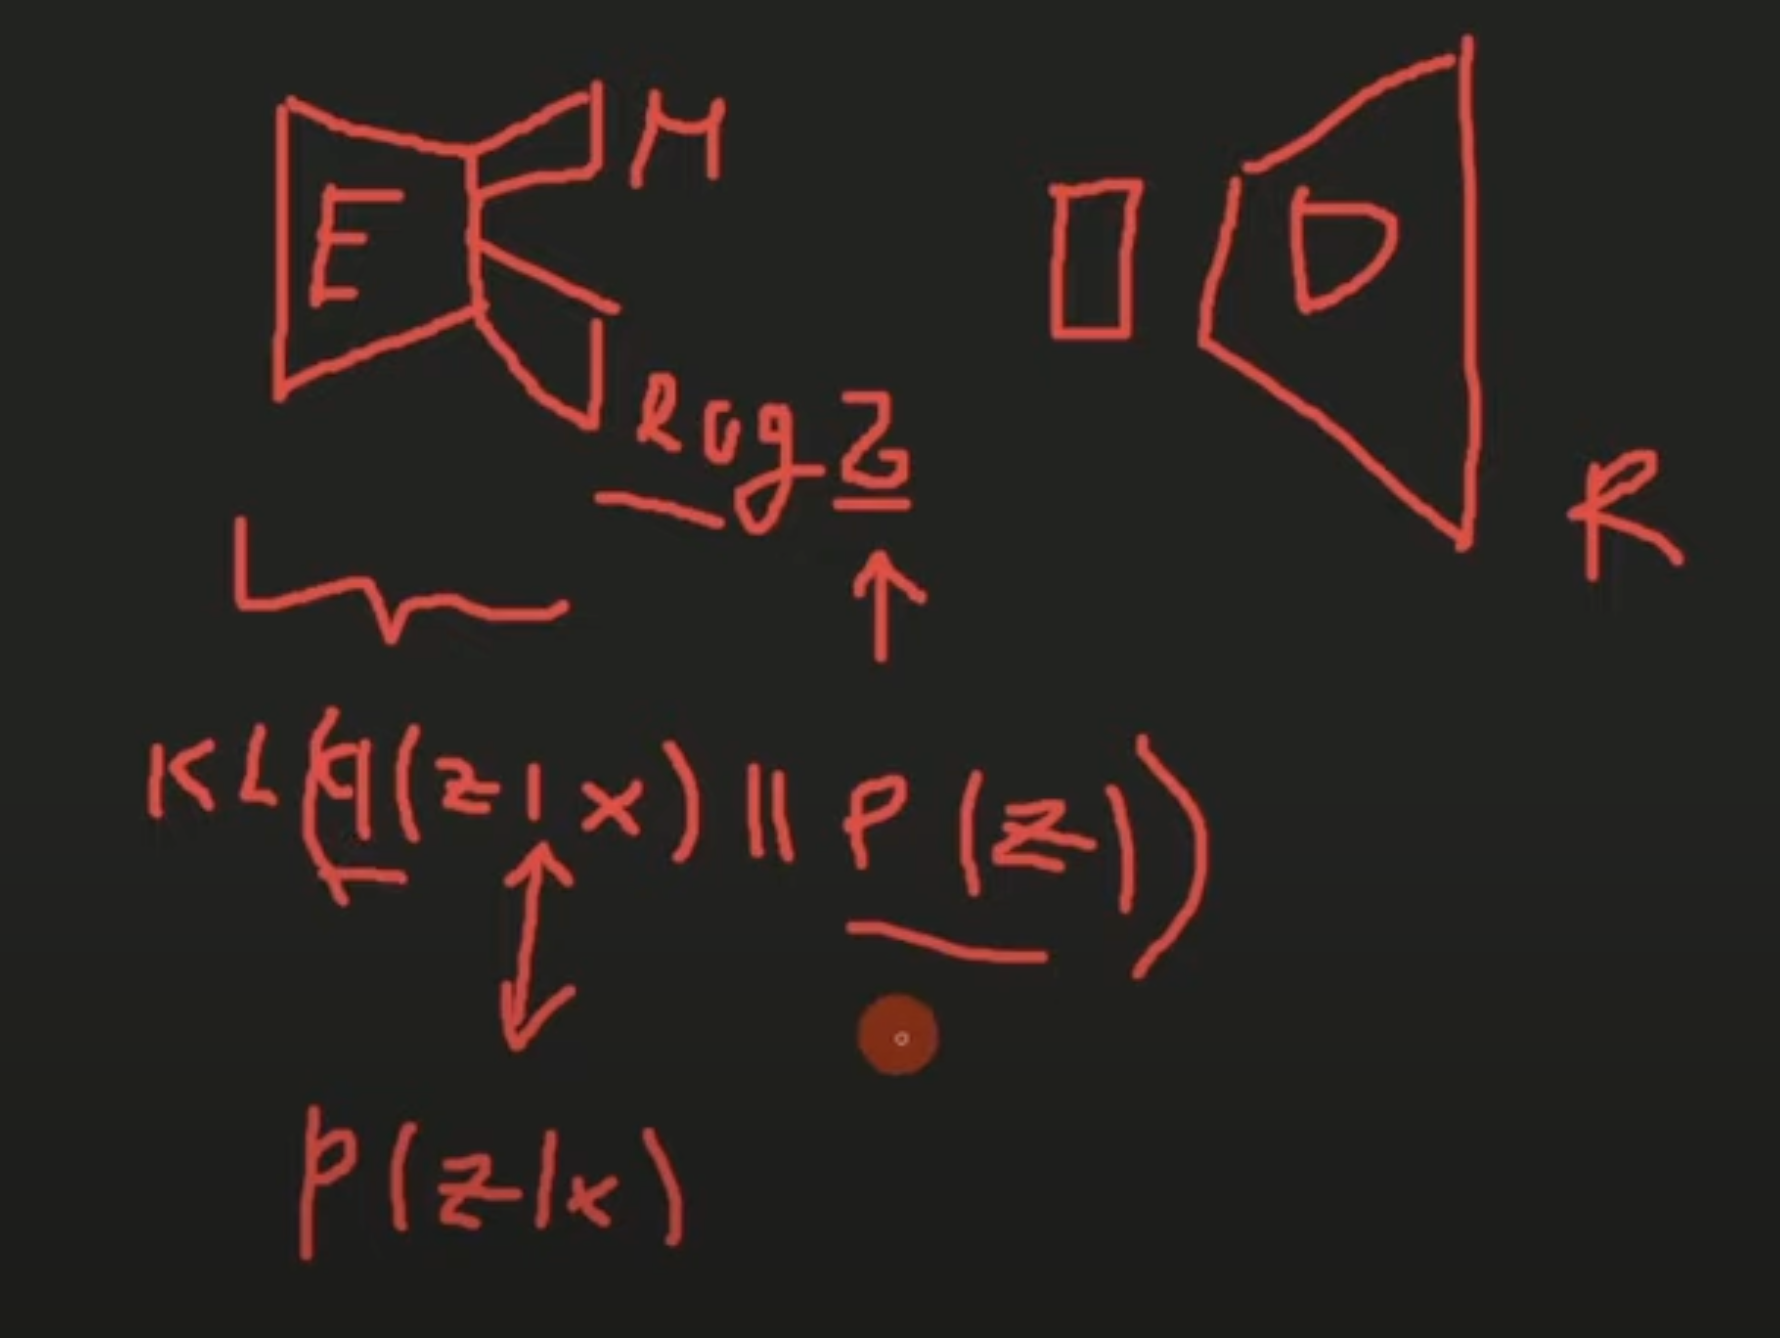 E M D
log Σ
R
KL(q(z|x) || P(z))
P(z|x)